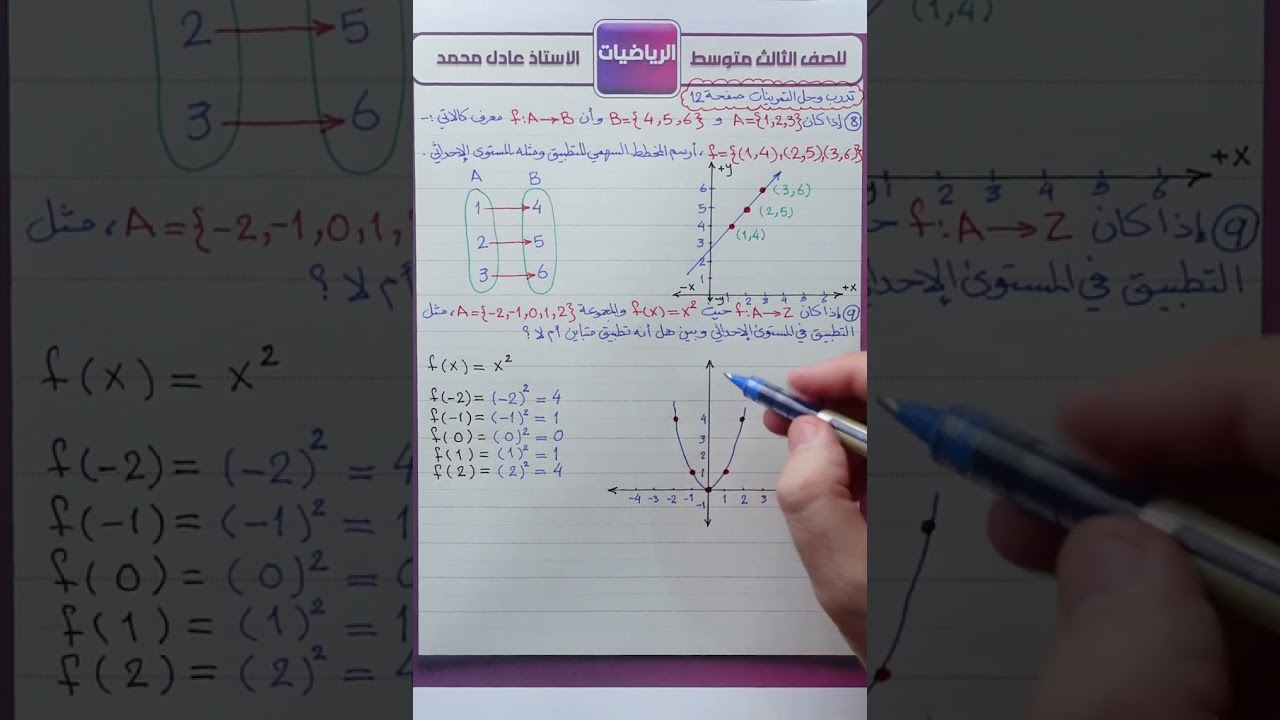 للصف الثالث متوسط الرياضيات الاستاذ عادل محمد
تدرب وحل التمرينات صفحة 12
⑧ إذا كان A={1,2,3} و B={4,5,6} وأن f:A→B معرف كالاتي :-
f={(1,4),(2,5),(3,6)} ، أرسم المخطط السهمي للتطبيق ومثله المستوى الإحداثي .
A B
1 4
2 5
3 6
+y
6
5
4
3
2
1
(3,6)
(2,5)
(1,4)
-x -y 1 2 3 4 5 6 +x
⑨ إذا كان f:A→Z حيث f(x)=x² والمجموعة A={-2,-1,0,1,2} ، مثل
التطبيق في المستوى الإحداثي وبين هل أنه تطبيق متباين أم لا ؟
f(x) = x²
f(-2) = (-2)² = 4
f(-1) = (-1)² = 1
f(0) = (0)² = 0
f(1) = (1)² = 1
f(2) = (2)² = 4
4
3
2
1
-4 -3 -2 -1 1 2 3
-1